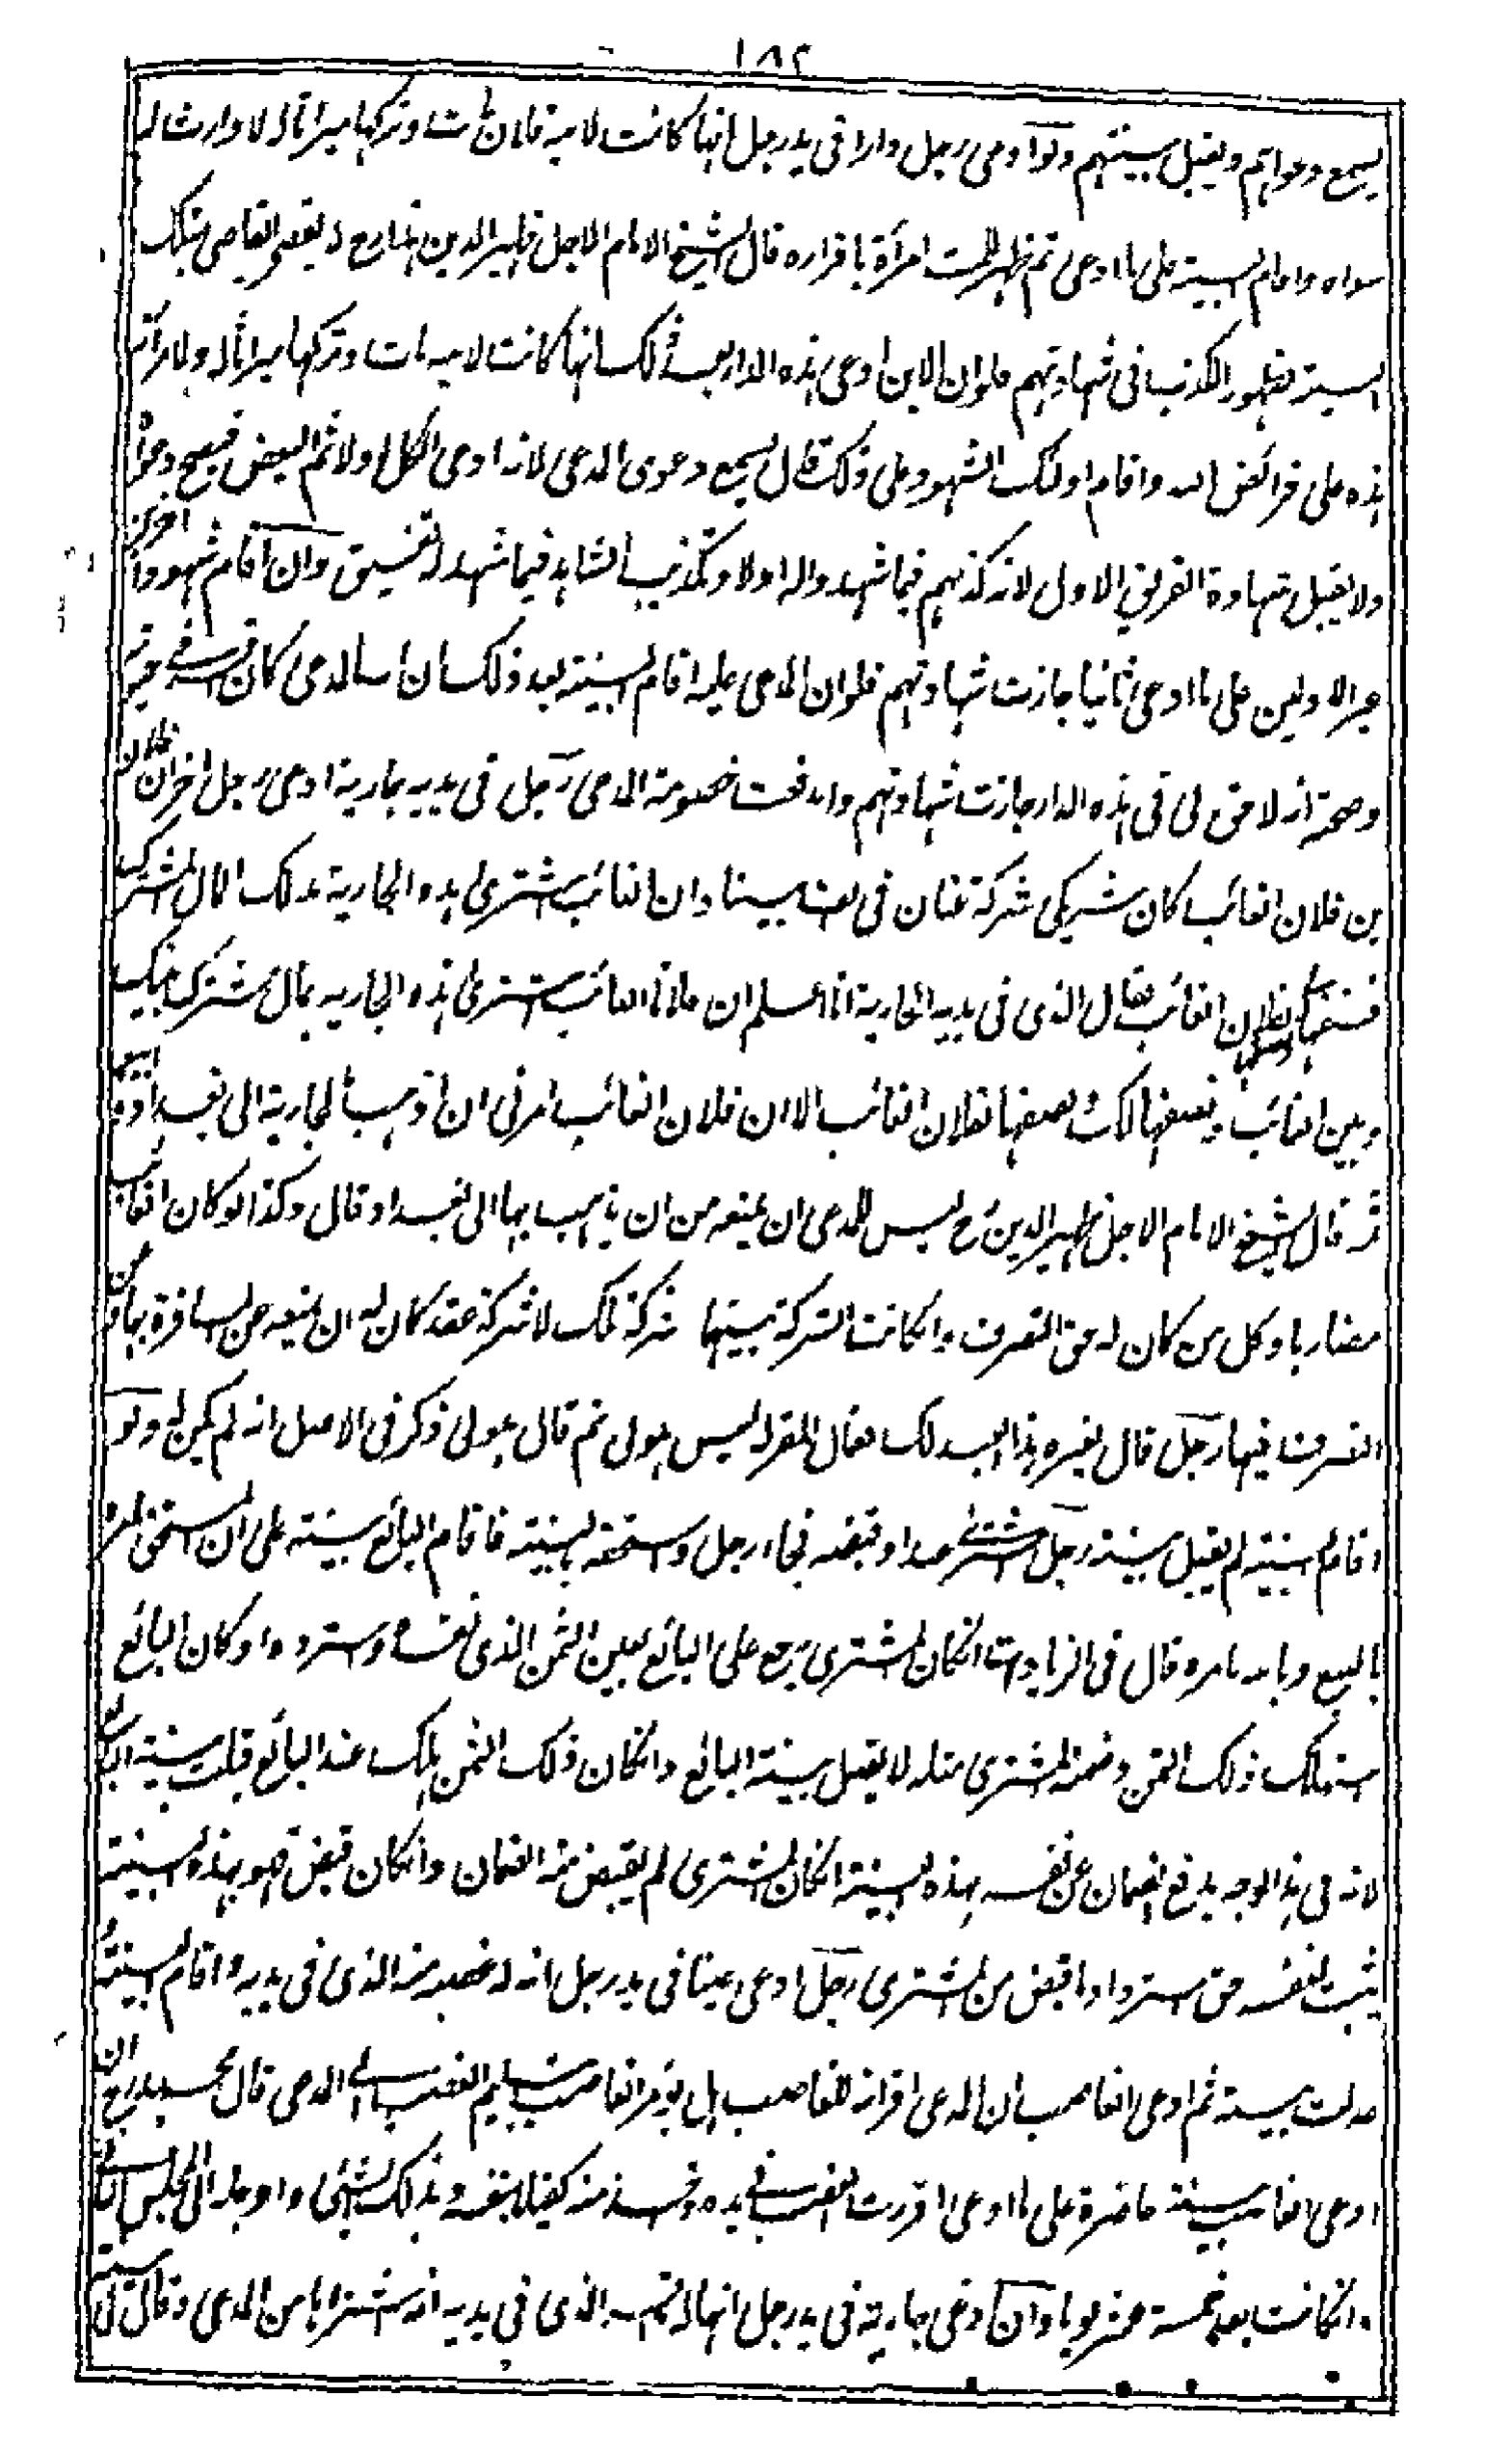 ١٨٢
يسمع دعواتهم ويقبل بينتهم ولو ادعى رجل دارا فى يد رجل انها كانت لابيه فلان مات وتركها ميراثا له لا وارث لها
سواه واقام البينة على ما ادعى ثم ظهر للميت امرأة باقراره قال الشيخ الامام الاجل ظهير الدين المارع لا يقضى القاضى بتلك
البينة لظهور الكذب فى شهادتهم فلو ان الابن ادعى هذه الدار بعد ذلك انها كانت لابيه مات وتركها ميراثا له ولامرأته
هذه على فرائض الله واقام اولئك الشهود على ذلك قال يسمع دعوى المدعى لانه ادعى الكل اولا ثم البعض فيصح دعواه
ولا يقبل شهادة الفريق الاول لانه كذبهم فيما شهدوا له اولا وتكذيب الشاهد فيما شهد له تفسيق وان اقام شهودا اخرين
غير الاولين على ما ادعى ثانيا جازت شهادتهم فلو ان المدعى عليه اقام البينة بعد ذلك ان اب المدعى كان اقر فى حيوته
وصحته انه لا حق لى فى هذه الدار جازت شهادتهم واندفعت خصومة المدعى رجل فى يديه جارية ادعى رجل اخر ان فلان
بن فلان الغائب كان شريكى شركة عنان فى بيننا وان الغائب اشترى هذه الجارية بذلك المال المشترك
فنصفها لى ونصفها لفلان الغائب فقال الذى فى يديه الجارية انا اعلم ان فلانا الغائب اشترى هذه الجاريه بمال مشترك بينك
وبين الغائب ونصفها لك ونصفها لفلان الغائب الا ان فلان الغائب امرنى ان اذهب بالجارية الى بغداد وابيعها
ثم قال الشيخ الامام الاجل ظهير الدين رح ليس للمدعى ان يمنعه من ان يذهب بها الى بغداد وقال وكذا لو كان الغائب
مضاربا وكل من كان له حق التصرف وان كانت الشركة بينهما شركة ملك لا شركة عقد كان له ان يمنعه عن المسافرة بها وعن
التصرف فيها رجل قال لغيره هذا العبد لك فقال المقر له ليس هو لى ثم قال هو لى ذكر فى الاصل انه لم يكن له ولو
اقام البينة لم يقبل بينته رجل اشترى عبدا وقبضه فجاء رجل واستحقه بالبينة فاقام البائع بينته على ان المستحق امره
بالبيع وباعه بامره قال فى الزيادات ان كان المشترى رجع على البائع بعين الثمن الذى نقده واسترده او كان البائع
استهلك ذلك الثمن وضمنه المشترى مثله لا يقبل بينة البائع وان كان ذلك الثمن هلك عند البائع قبلت بينة البائع
لانه فى هذا الوجه يدفع الضمان عن نفسه بهذه البينة ان كان المشترى لم يقبض منه الضمان وان كان قبض فهو بهذه البينة
يثبت لنفسه حق استرداد ما قبض من المشترى رجل ادعى عينا فى يد رجل انه له غصبه منه الذى فى يديه واقام البينة
عدلت بينته ثم ادعى الغاصب ان المدعى اقر انه للغاصب هل يؤمر الغاصب بتسليم الغصب الى المدعى قال محمد رح ان
ادعى الغاصب بينة حاضرة على ما ادعى اقررت الغصب فى يده واخذ منه كفيلا بنفسه وبذلك الشئ واوجله الى المجلس الثانى
وان كانت بعد خمسة عشر يوما وان ادعى جارية فى يد رجل انها له الذى فى يديه انه اشتراها من المدعى وقال